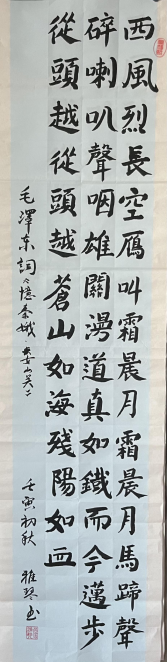 西風烈長空雁叫霜晨月霜晨月馬蹄聲
碎喇叭聲咽雄關漫道真如鐵而今邁步
從頭越從頭越蒼山如海殘陽如血
毛澤東詞憶秦娥·婁山關
壬寅初秋 雅琴书